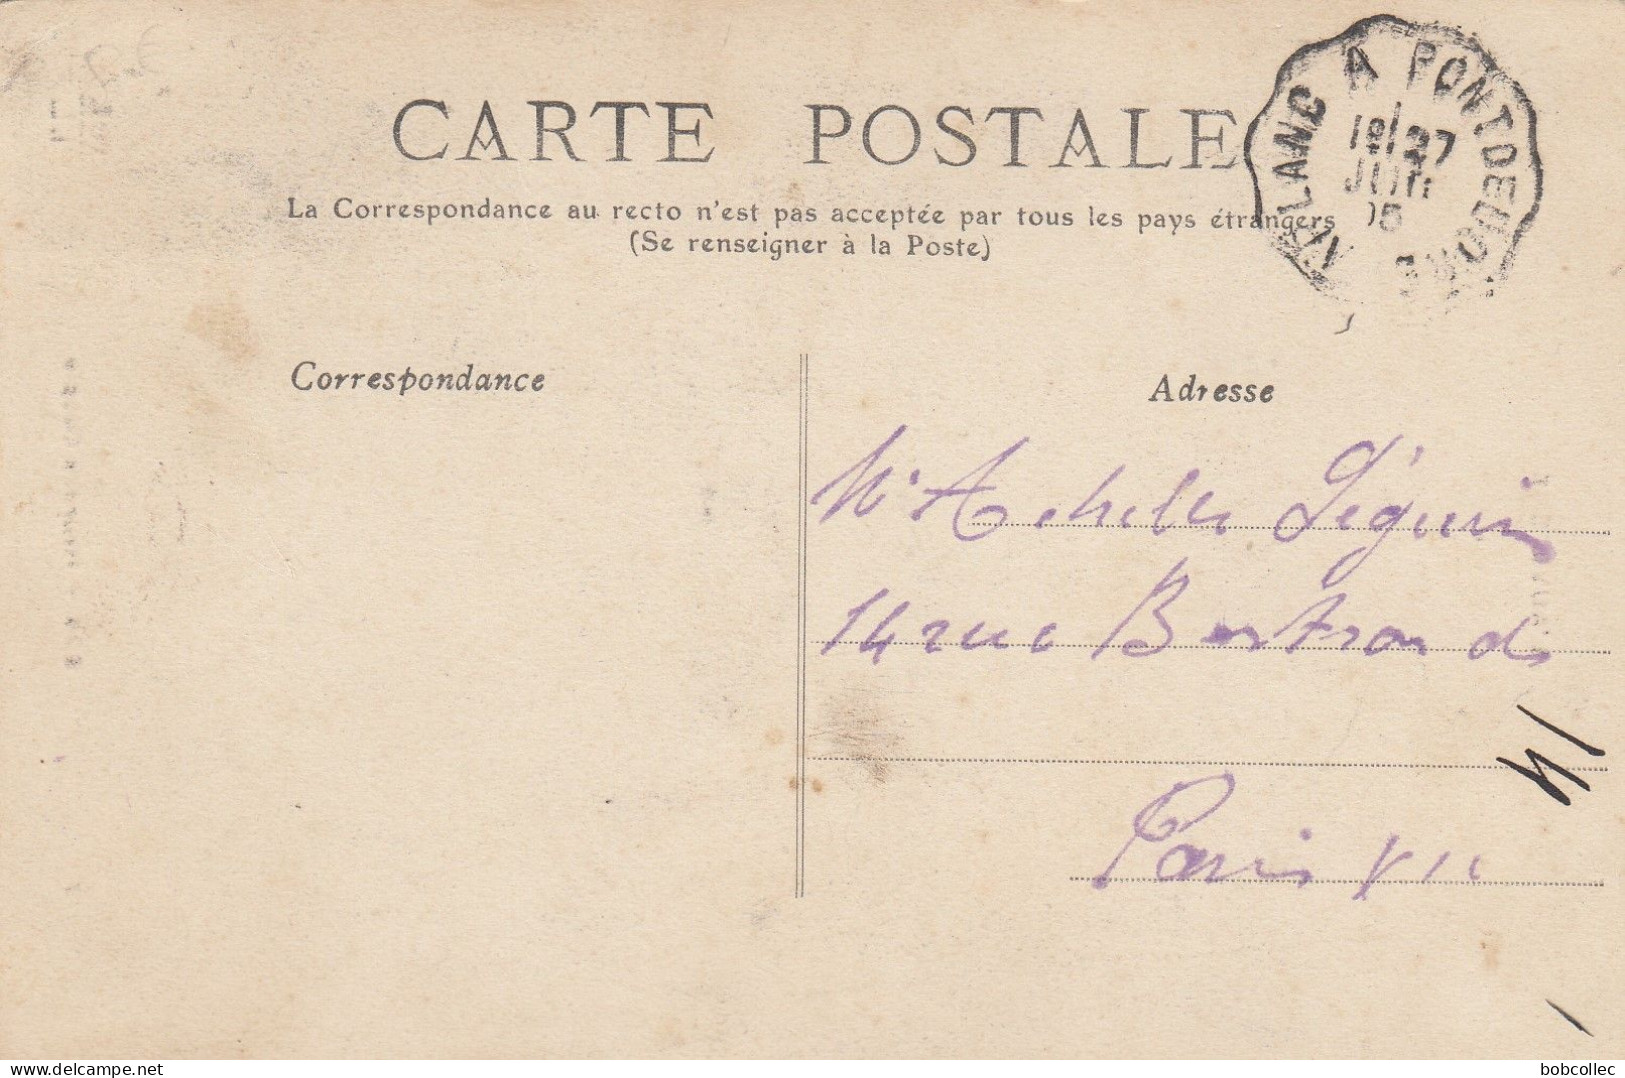 CARTE POSTALE
La Correspondance au recto n'est pas acceptée par tous les pays étrangers
(Se renseigner à la Poste)
LANC A PONTDEDORE
27
JUIL
05
Correspondance
Adresse
Mr Achille Séguin
14 rue Bertrand
14
Paris VII
bobcollec